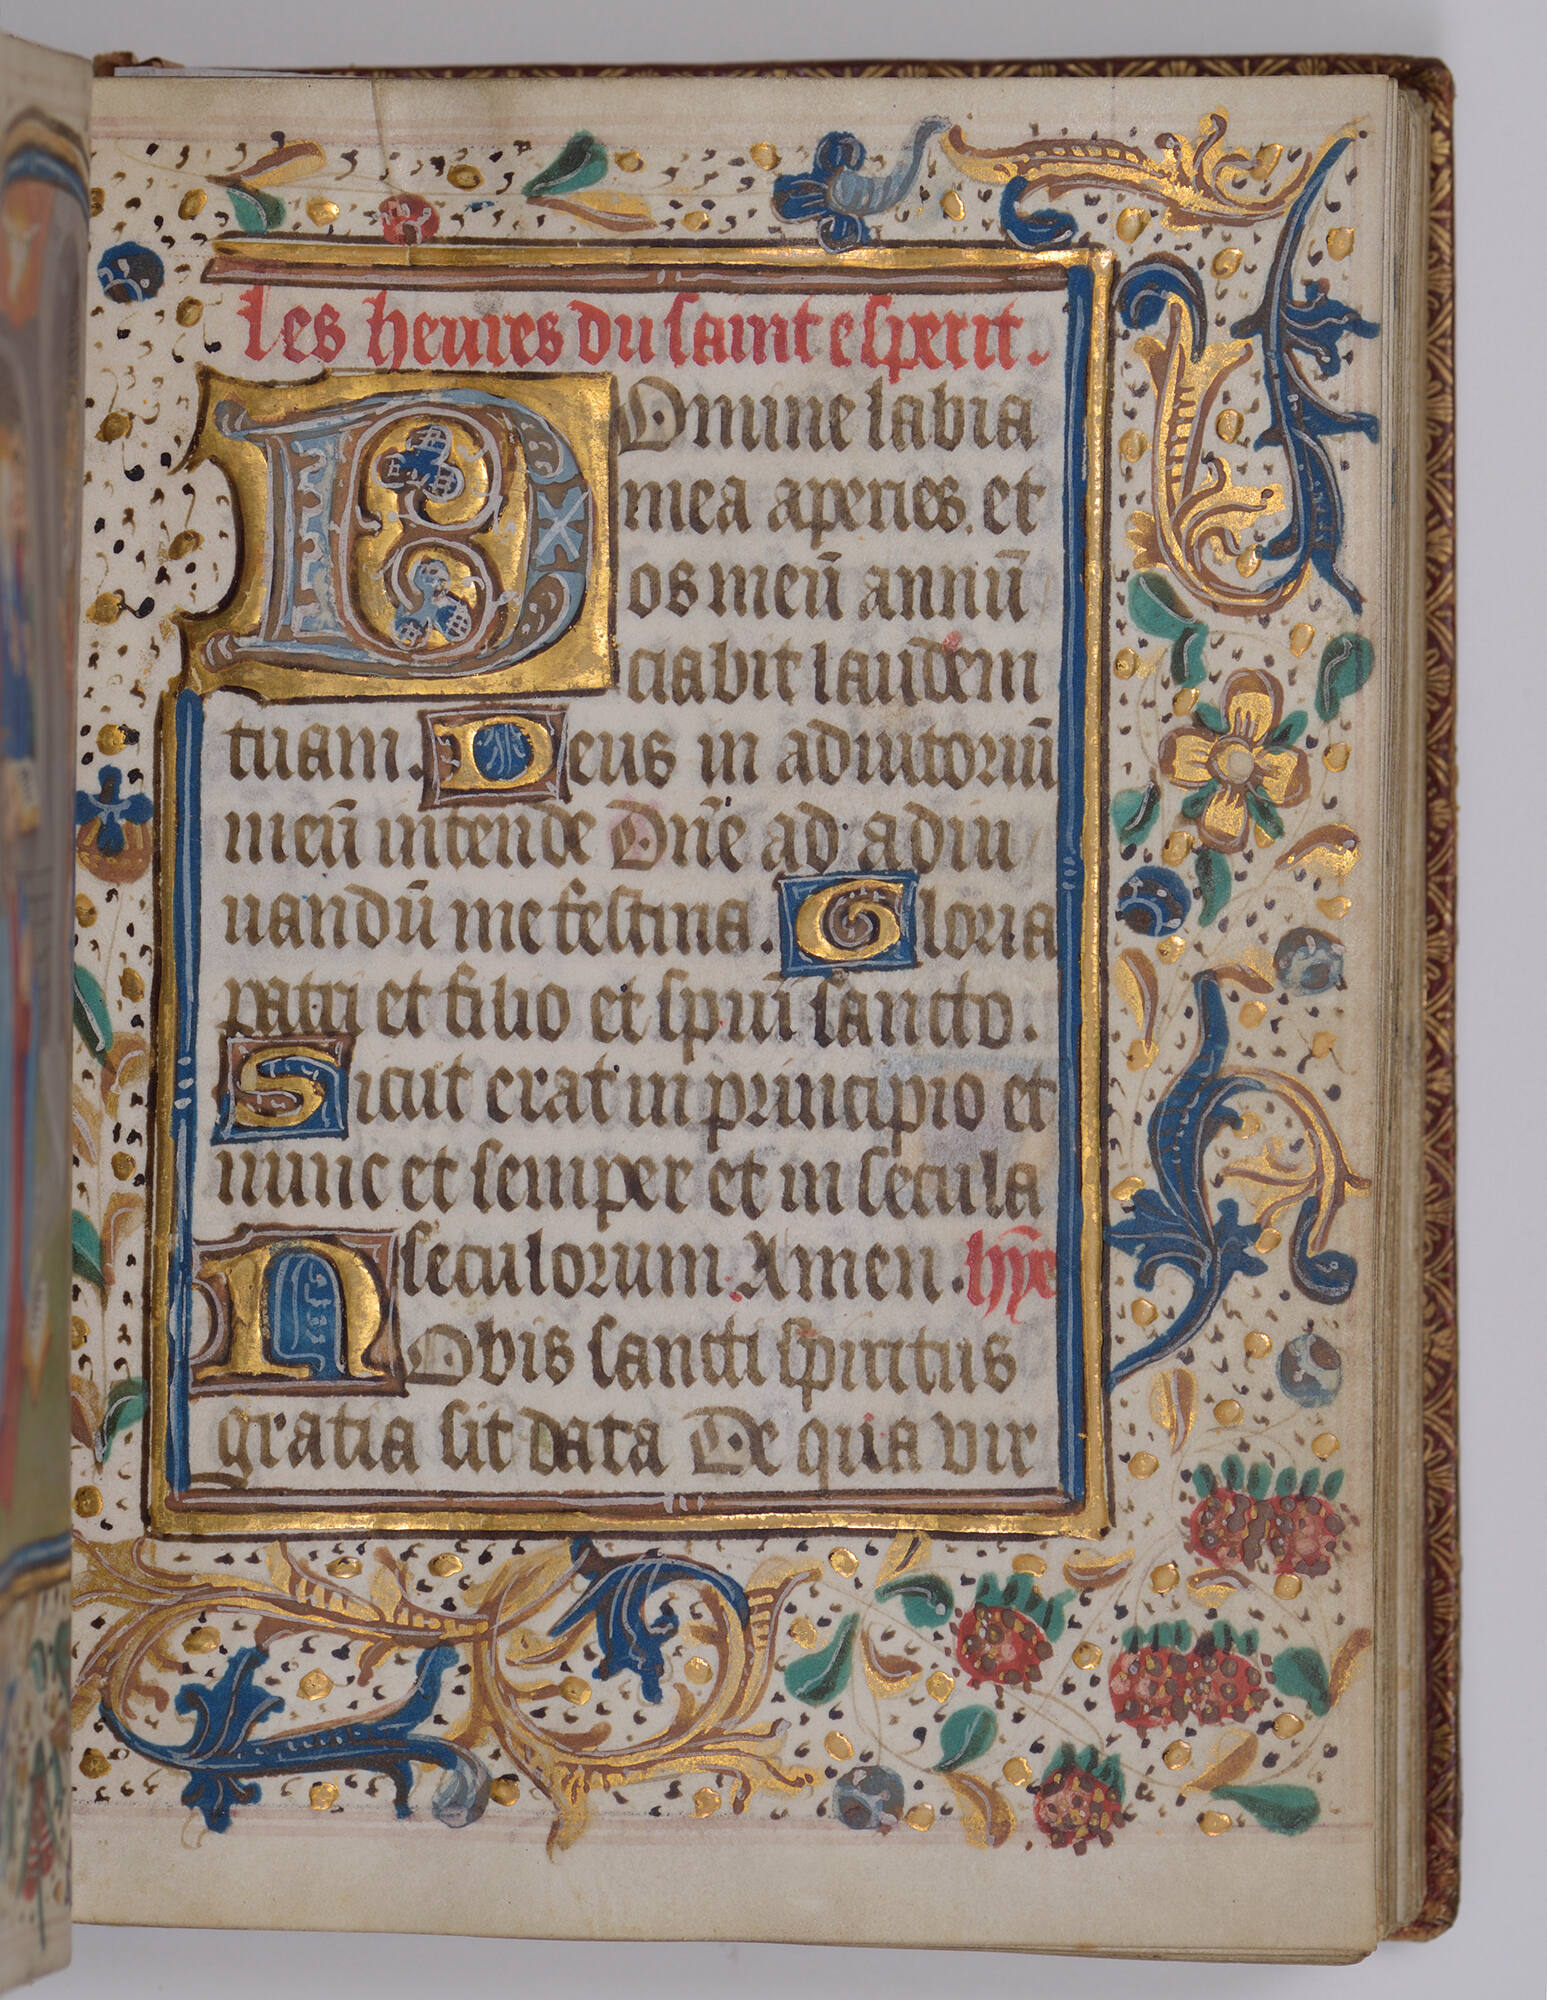 les heures du saint esperit.
DOmine labia
mea aperies. et
os meū annū
ciabit laudem
tuam. Deus in adiutoriū
meū intende Dn̄e ad adiu
uandū me festina. Gloria
patri et filio et spūi sancto.
Sicut erat in principio et
nunc et semper et in secula
seculorum. Amen. hȳe
NObis sancti spiritus
gratia sit data De qua vir